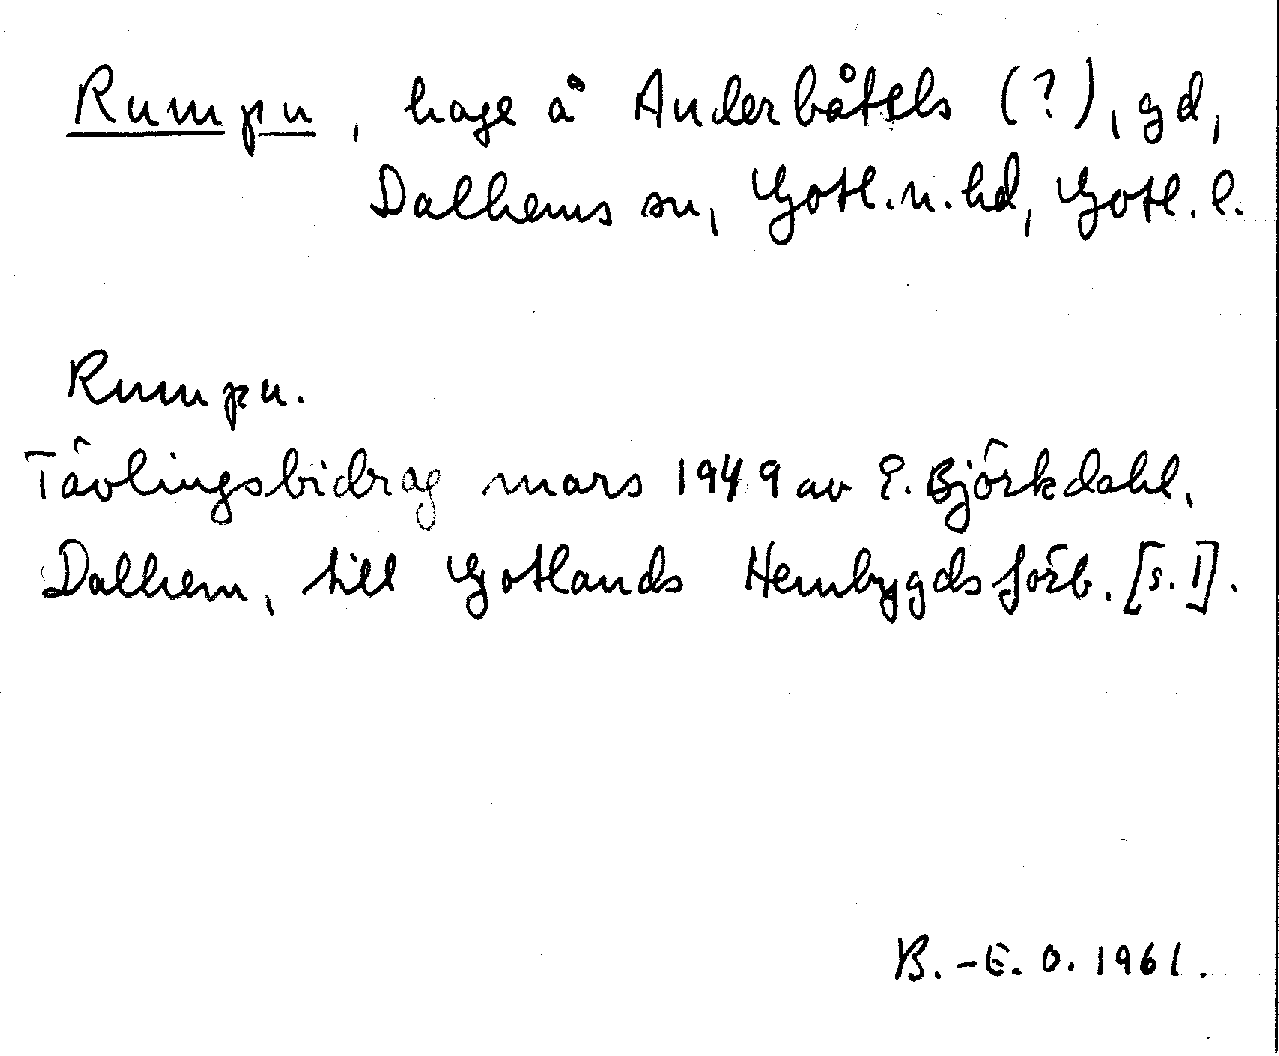 Rumpu, hage å Anderbåtels (?), gd,
Dalhems sn, Gotl. n. hd, Gotl. l.
Rumpu.
Tävlingsbidrag mars 1949 av E. Björkdahl,
Dalhem, till Gotlands Hembygdsförb. [s. 1].
B.-E. O. 1961.